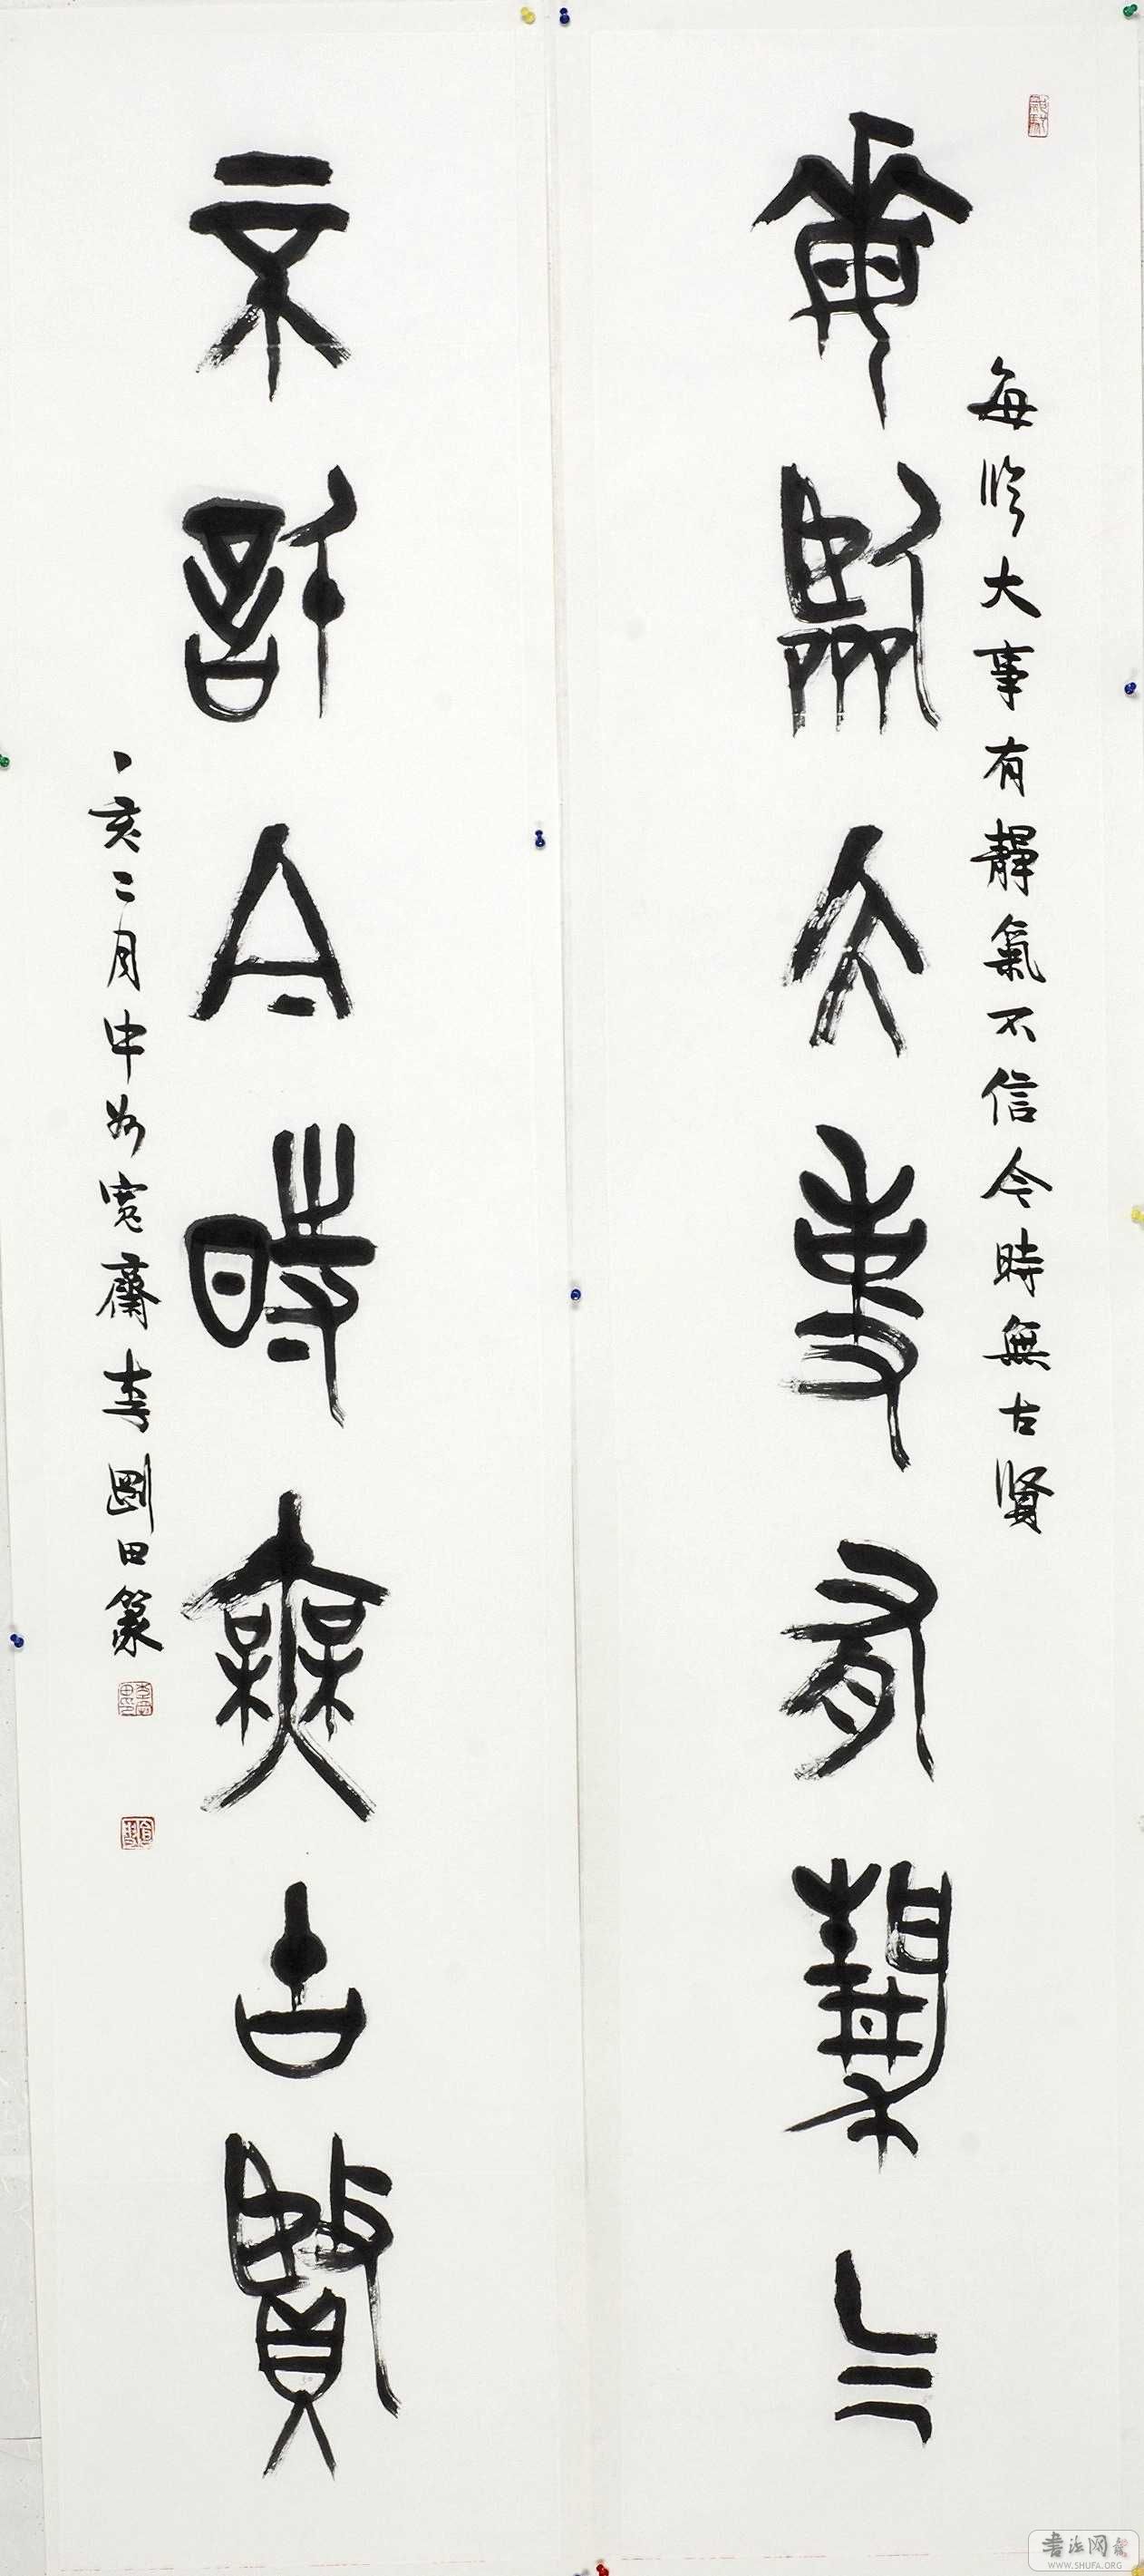 每臨大事有靜氣不信今時無古賢
每臨大事有靜气
不信今時無古賢
丁亥二月中州寬齋李剛田篆
書法网
WWW.SHUFA.ORG